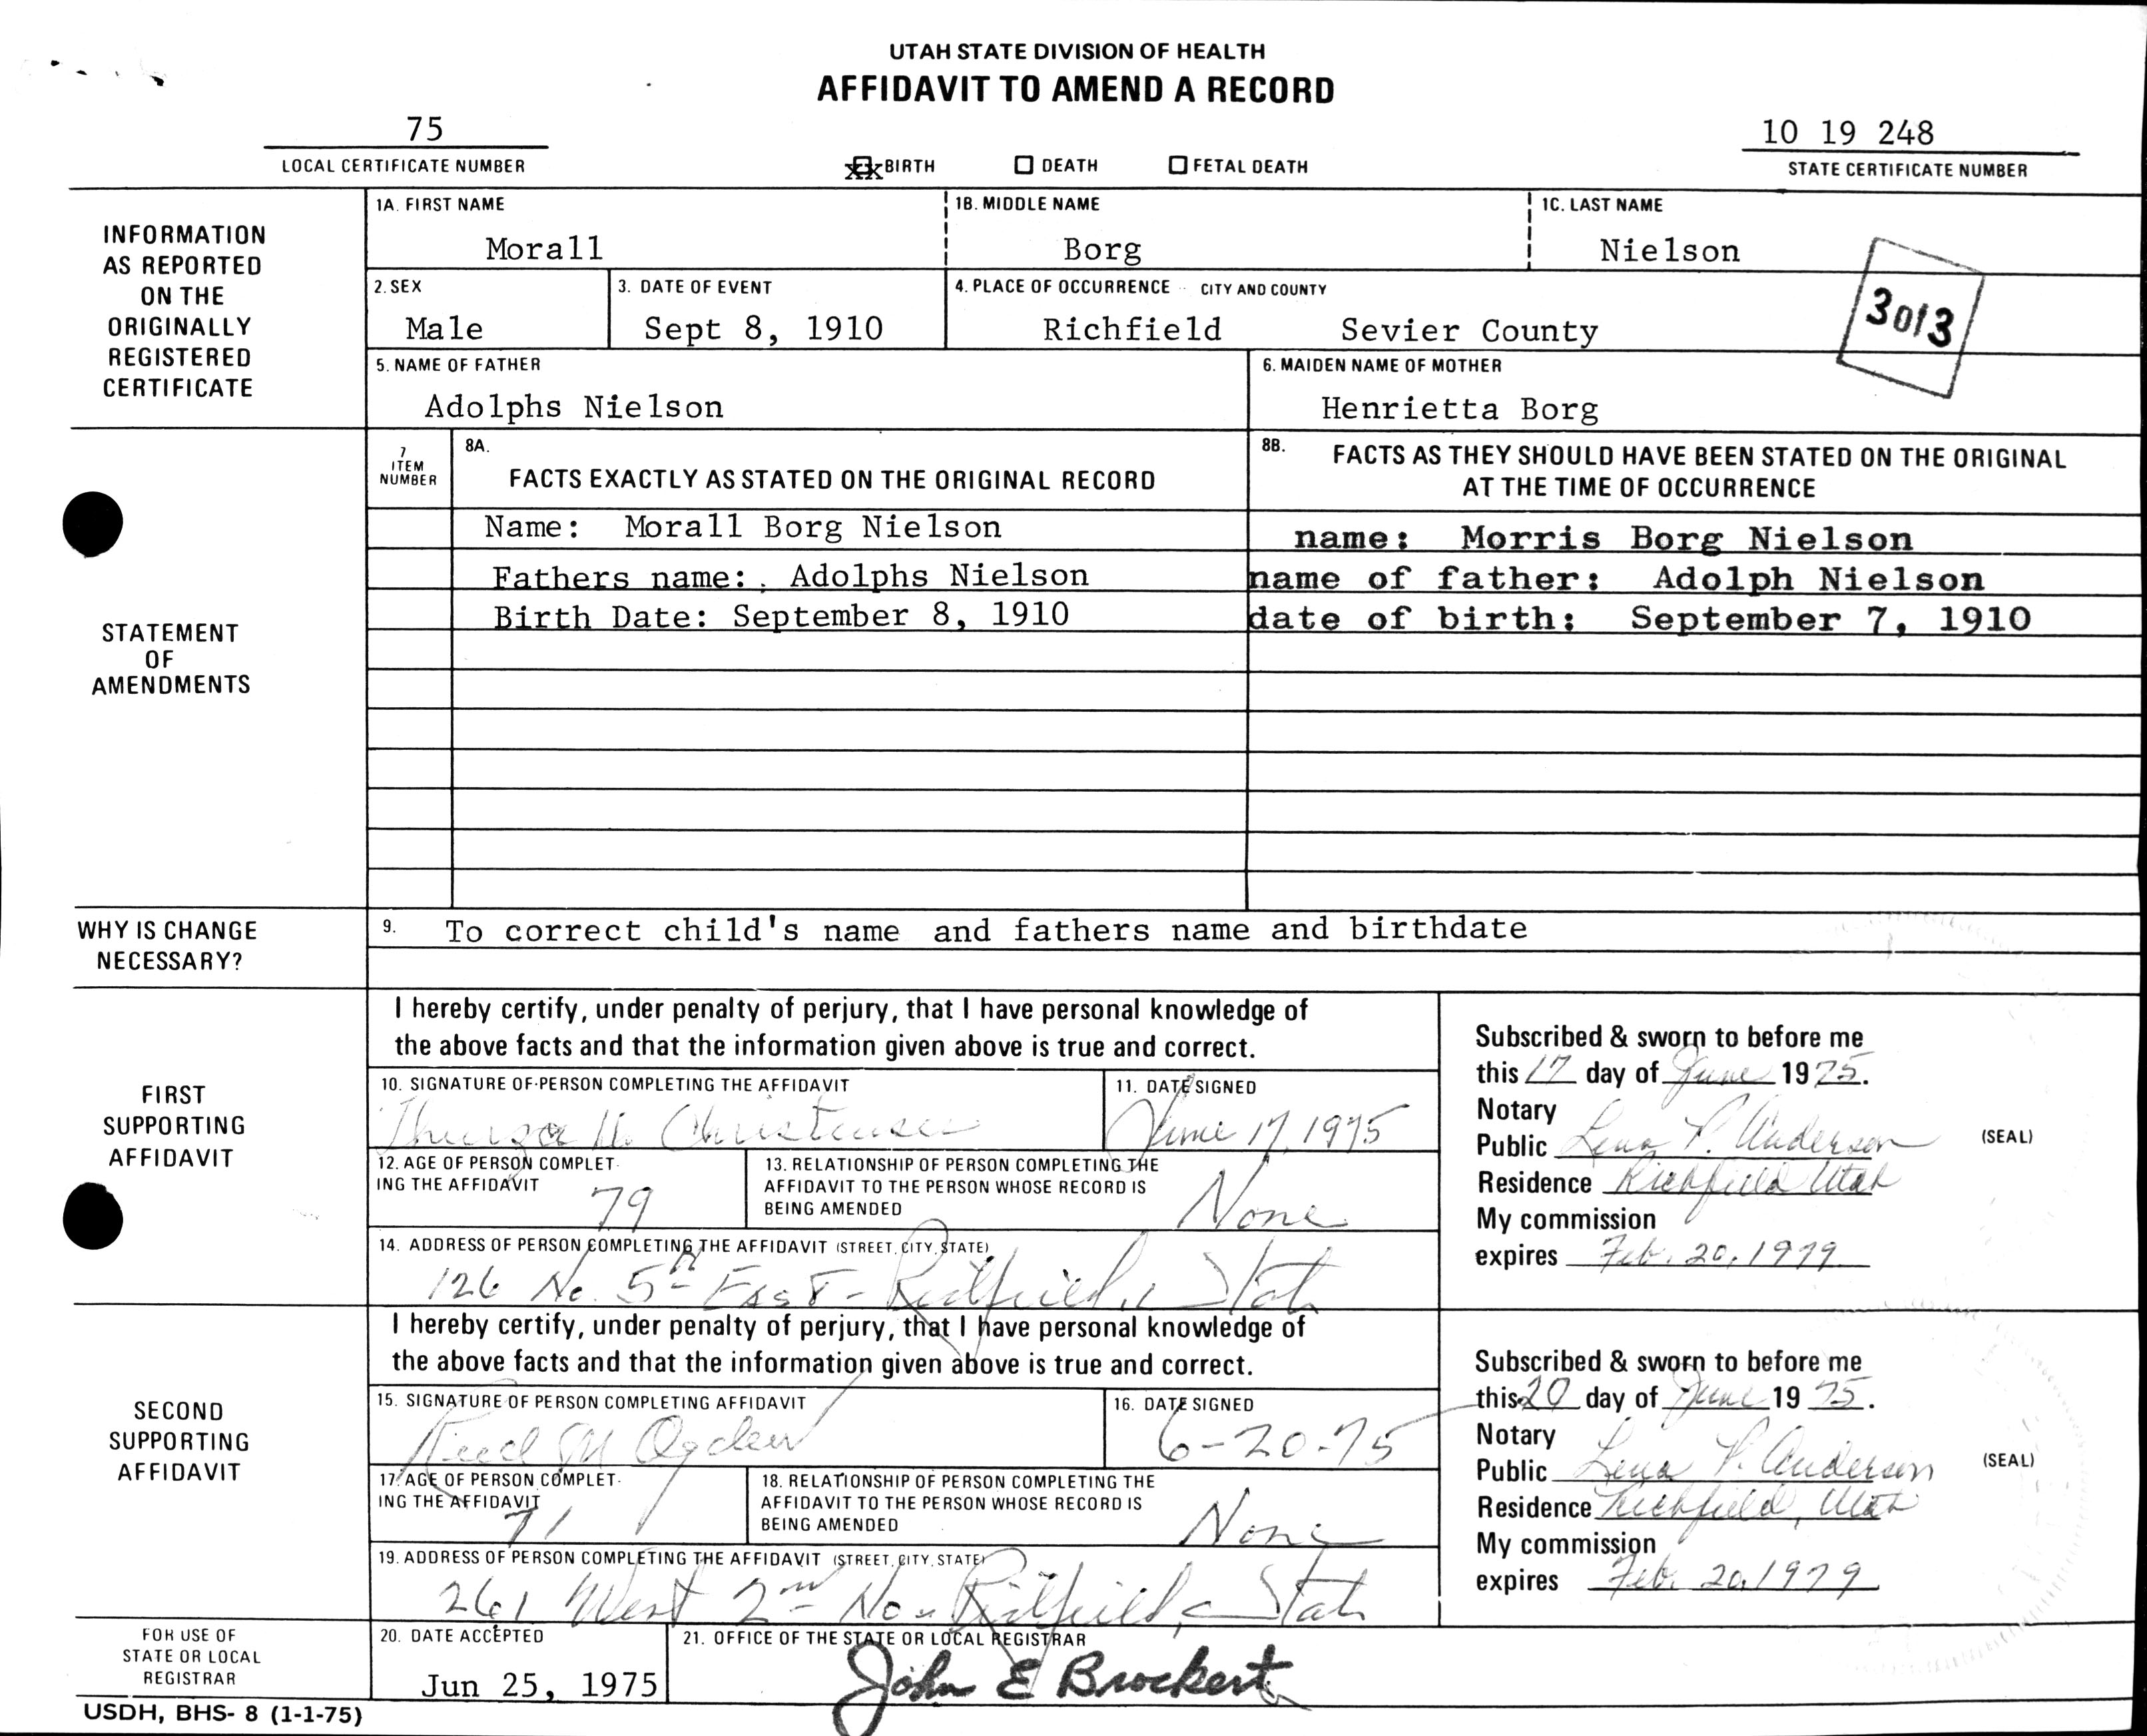 UTAH STATE DIVISION OF HEALTH
AFFIDAVIT TO AMEND A RECORD
75
LOCAL CERTIFICATE NUMBER
XX BIRTH DEATH FETAL DEATH
10 19 248
STATE CERTIFICATE NUMBER
INFORMATION
AS REPORTED
ON THE
ORIGINALLY
REGISTERED
CERTIFICATE
1A. FIRST NAME
Morall
1B. MIDDLE NAME
Borg
1C. LAST NAME
Nielson
3013
2. SEX
Male
3. DATE OF EVENT
Sept 8, 1910
4. PLACE OF OCCURRENCE CITY AND COUNTY
Richfield Sevier County
5. NAME OF FATHER
Adolphs Nielson
6. MAIDEN NAME OF MOTHER
Henrietta Borg
STATEMENT
OF
AMENDMENTS
7
ITEM
NUMBER
8A.
FACTS EXACTLY AS STATED ON THE ORIGINAL RECORD
8B. FACTS AS THEY SHOULD HAVE BEEN STATED ON THE ORIGINAL
AT THE TIME OF OCCURRENCE
Name: Morall Borg Nielson
name: Morris Borg Nielson
Fathers name: Adolphs Nielson
name of father: Adolph Nielson
Birth Date: September 8, 1910
date of birth: September 7, 1910
WHY IS CHANGE
NECESSARY?
9. To correct child's name and fathers name and birthdate
FIRST
SUPPORTING
AFFIDAVIT
I hereby certify, under penalty of perjury, that I have personal knowledge of
the above facts and that the information given above is true and correct.
10. SIGNATURE OF PERSON COMPLETING THE AFFIDAVIT
Christensen
11. DATE SIGNED
June 17, 1975
12. AGE OF PERSON COMPLET-
ING THE AFFIDAVIT
79
13. RELATIONSHIP OF PERSON COMPLETING THE
AFFIDAVIT TO THE PERSON WHOSE RECORD IS
BEING AMENDED
None
14. ADDRESS OF PERSON COMPLETING THE AFFIDAVIT (STREET, CITY, STATE)
126 No. 5th East - Richfield, Utah
Subscribed & sworn to before me
this 17 day of June 1975.
Notary
Public Lena P. Anderson
(SEAL)
Residence Richfield Utah
My commission
expires Feb. 20, 1979
SECOND
SUPPORTING
AFFIDAVIT
I hereby certify, under penalty of perjury, that I have personal knowledge of
the above facts and that the information given above is true and correct.
15. SIGNATURE OF PERSON COMPLETING AFFIDAVIT
Reed M Ogden
16. DATE SIGNED
6-20-75
17. AGE OF PERSON COMPLET-
ING THE AFFIDAVIT
71
18. RELATIONSHIP OF PERSON COMPLETING THE
AFFIDAVIT TO THE PERSON WHOSE RECORD IS
BEING AMENDED
None
19. ADDRESS OF PERSON COMPLETING THE AFFIDAVIT (STREET, CITY, STATE)
261 West 2nd No - Richfield, Utah
Subscribed & sworn to before me
this 20 day of June 1975.
Notary
Public Lena P. Anderson
(SEAL)
Residence Richfield, Utah
My commission
expires Feb. 20, 1979
FOR USE OF
STATE OR LOCAL
REGISTRAR
20. DATE ACCEPTED
Jun 25, 1975
21. OFFICE OF THE STATE OR LOCAL REGISTRAR
John E Brockert
USDH, BHS- 8 (1-1-75)